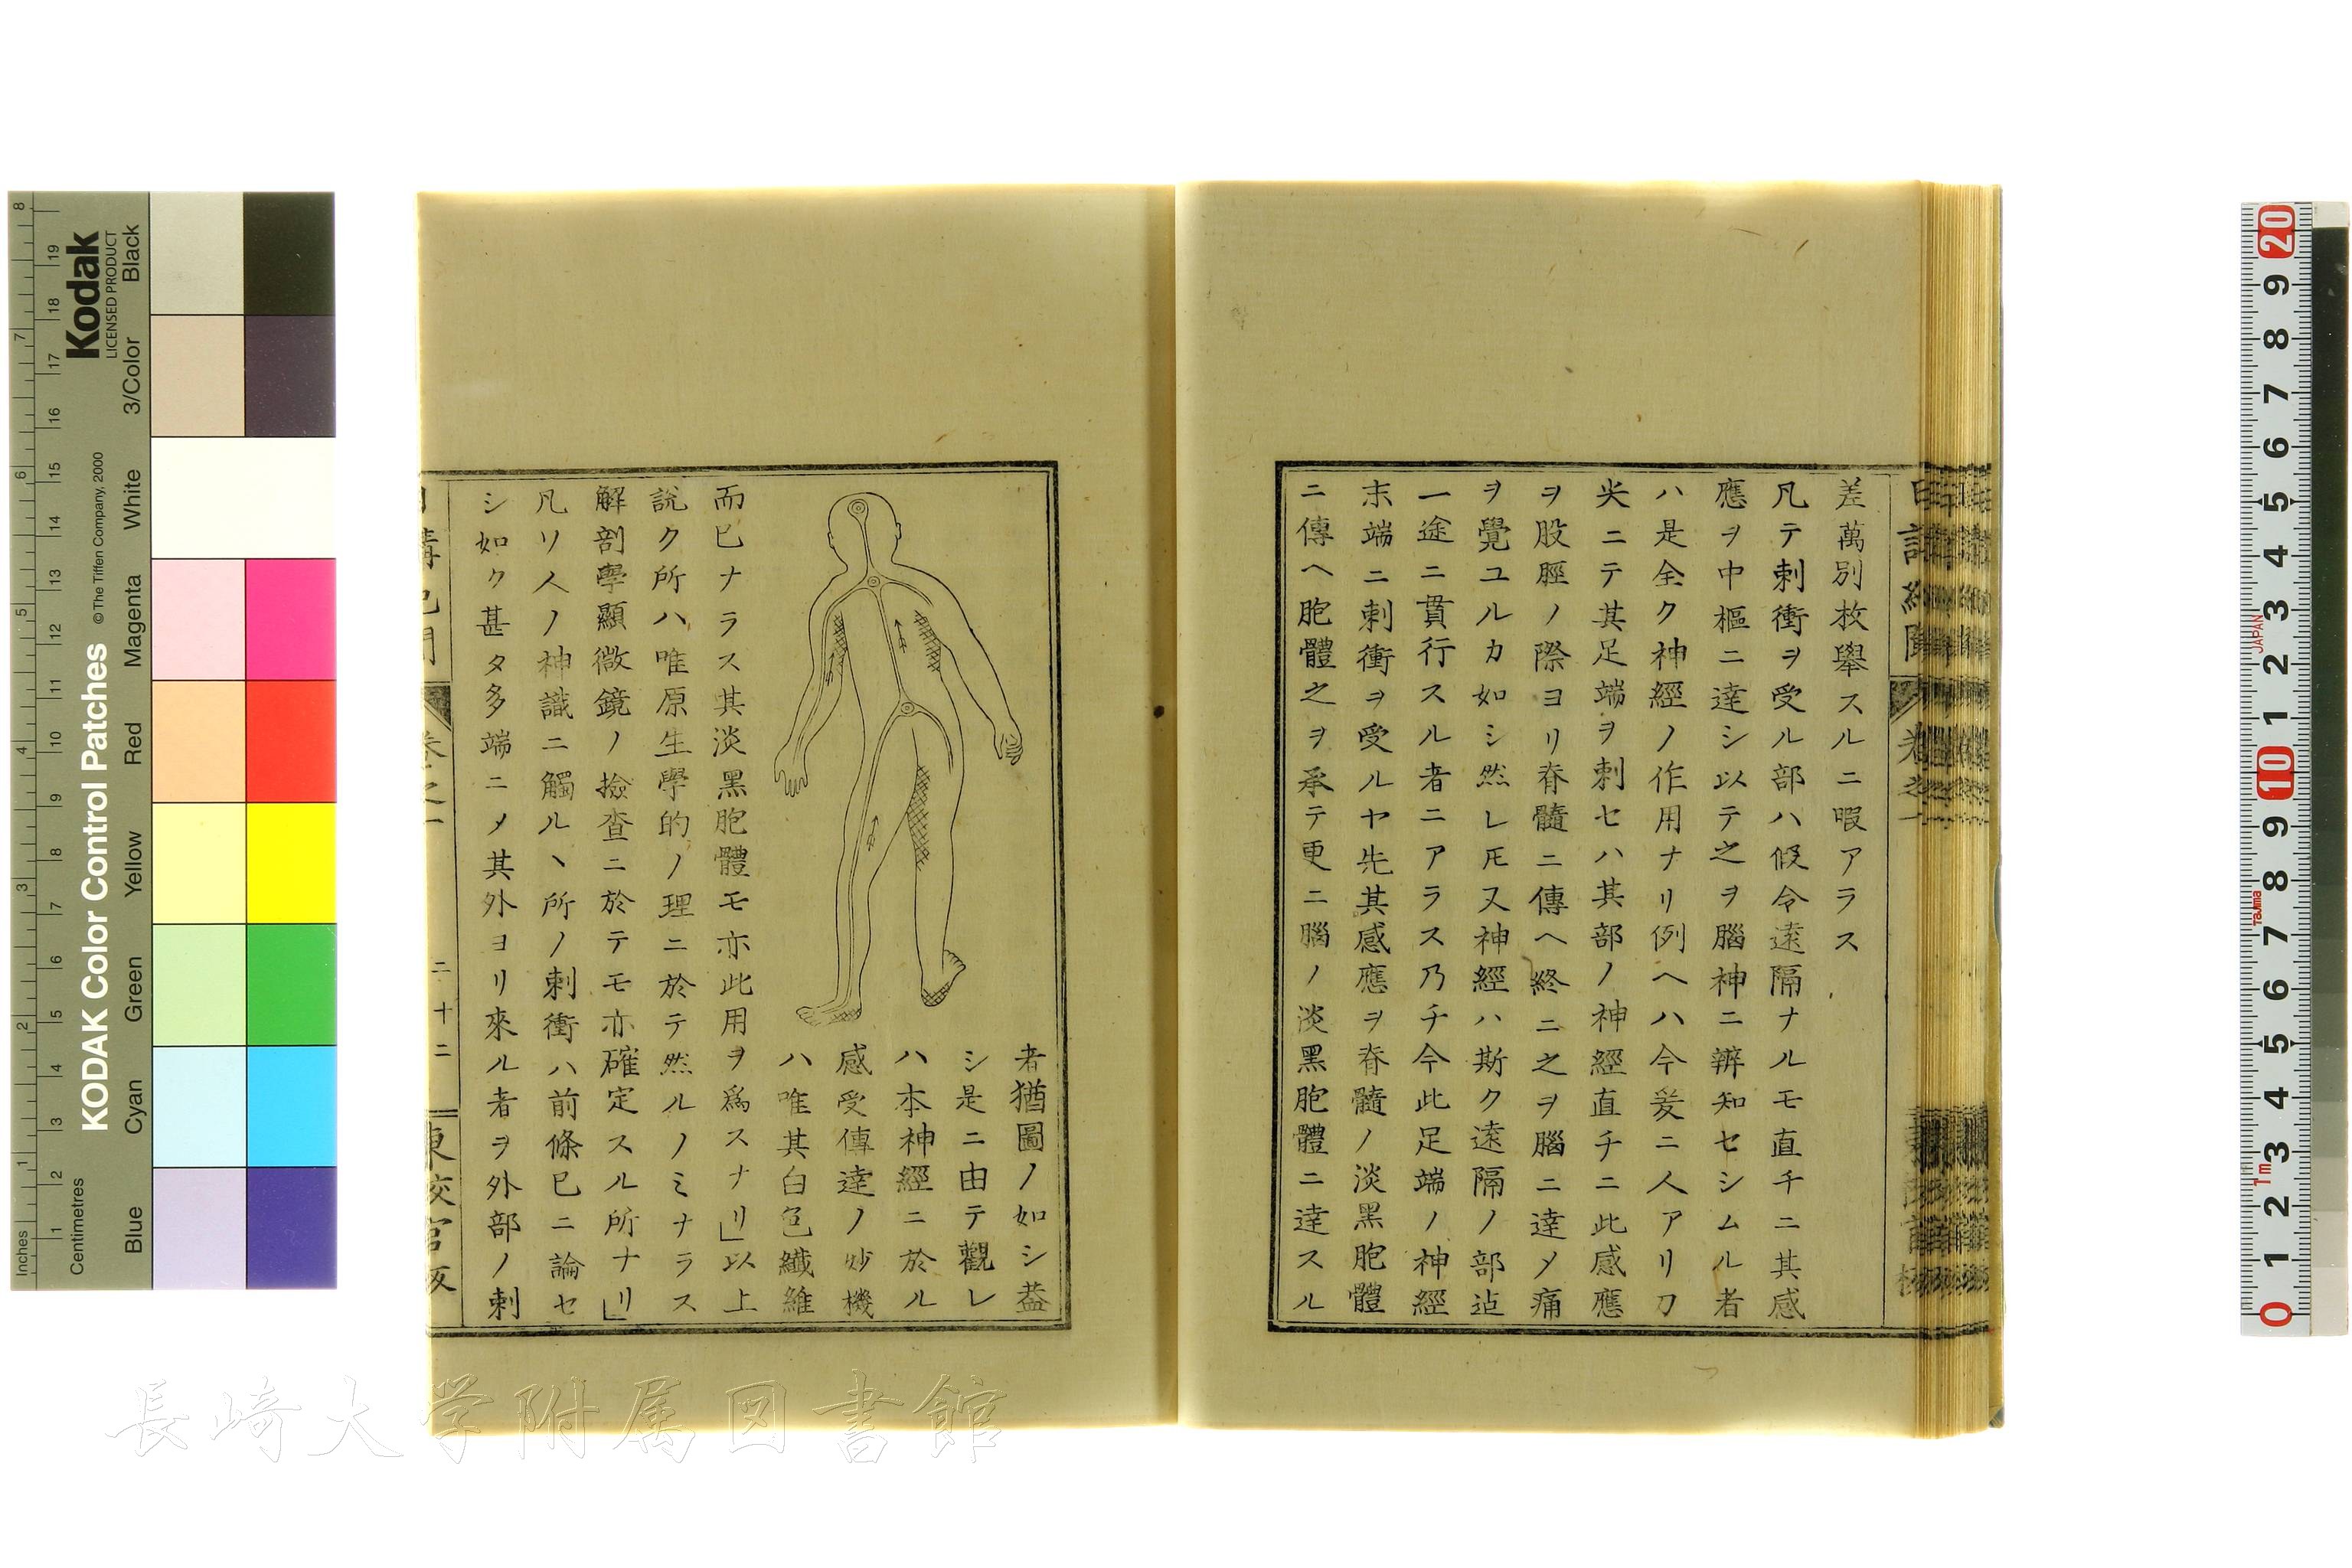 差萬別枚擧スルニ暇アラス
凡テ刺衝ヲ受ル部ハ假令遠隔ナルモ直チニ其感
應ヲ中樞ニ達シ以テ之ヲ腦神ニ辨知セシムル者
ハ是全ク神經ノ作用ナリ例ヘハ今爰ニ人アリ刀
尖ニテ其足端ヲ刺セハ其部ノ神經直チニ此感應
ヲ股脛ノ際ヨリ脊髓ニ傳ヘ終ニ之ヲ腦ニ達メ痛
ヲ覺ユルカ如シ然レ𪜈又神經ハ斯ク遠隔ノ部迠
一途ニ貫行スル者ニアラス乃チ今此足端ノ神經
末端ニ刺衝ヲ受ルヤ先其感應ヲ脊髓ノ淡黑胞體
ニ傳ヘ胞體之ヲ承テ更ニ腦ノ淡黑胞體ニ達スル
者猶圖ノ如シ葢
シ是ニ由テ觀レ
ハ本神經ニ於ル
感受傳達ノ妙機
ハ唯其白色纖維
而已ナラス其淡黑胞體モ亦此用ヲ爲スナリ」以上
說ク所ハ唯原生學的ノ理ニ於テ然ルノミナラス
解剖學顯微鏡ノ撿查ニ於テモ亦確定スル所ナリ」
凡ソ人ノ神識ニ觸ルヽ所ノ刺衝ハ前條已ニ論セ
シ如ク甚タ多端ニメ其外ヨリ來ル者ヲ外部ノ刺
卷之一
二十二
東校官版
長崎大学附属図書館
Kodak
LICENSED PRODUCT
KODAK Color Control Patches
© The Tiffen Company, 2000
Inches
Centimetres
Blue
Cyan
Green
Yellow
Red
Magenta
White
3/Color
Black
JAPAN
Tajima
1m